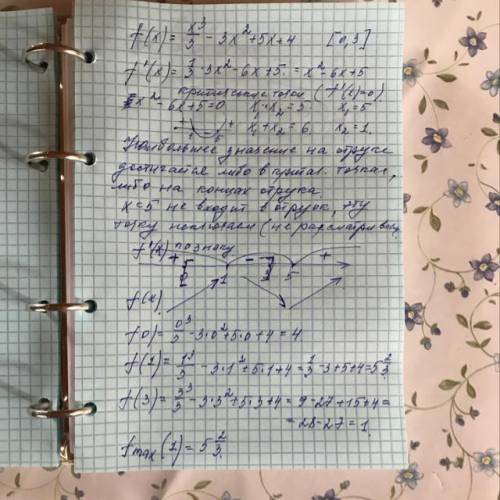 f(x) = x³/3 - 3x² + 5x + 4 [0,3]
f'(x) = 1/3 · 3x² - 6x + 5 = x² - 6x + 5
критические точки (f'(x)=0)
x² - 6x + 5 = 0 x₁·x₂ = 5 x₁ = 5
x₁ + x₂ = 6 x₂ = 1
Наибольшее значение на отрезке
достигается либо в критич. точках,
либо на концах отрезка
x = 5 не входит в отрезок, эту
точку исключаем (не рассматриваем)
f'(x) по знаку
+ - +
0 1 3 5
f(x)
f(0) = 0³/3 - 3·0² + 5·0 + 4 = 4
f(1) = 1³/3 - 3·1² + 5·1 + 4 = 1/3 - 3 + 5 + 4 = 5 2/3
f(3) = 3³/3 - 3·3² + 5·3 + 4 = 9 - 27 + 15 + 4 =
= 28 - 27 = 1
fmax(1) = 5 2/3